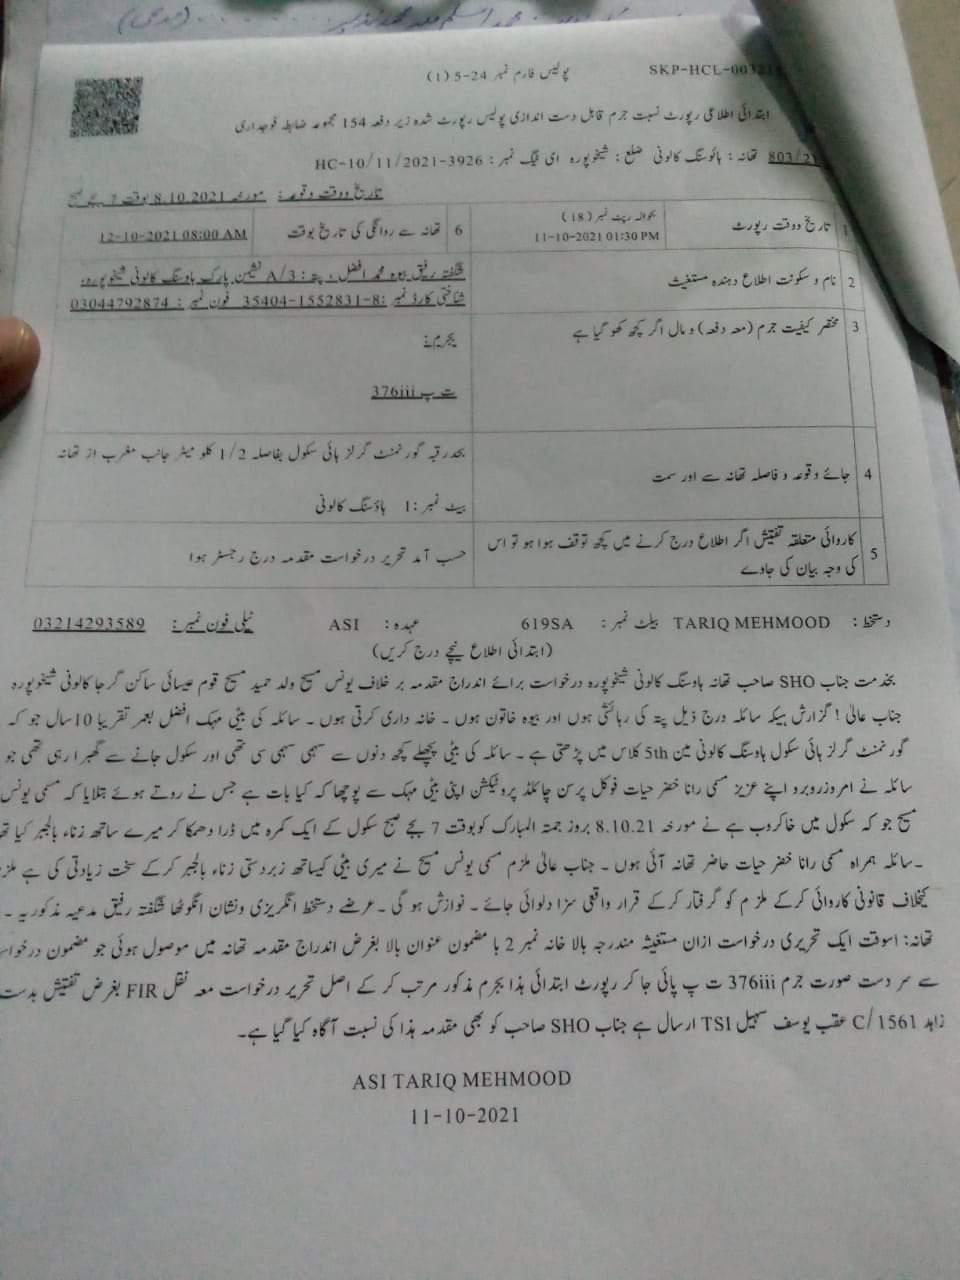 محمد اسلم ولد محمد نذیر (مدعی)
پولیس فارم نمبر 24-5 (1) SKP-HCL-003
ابتدائی اطلاعی رپورٹ نسبت جرم قابل دست اندازی پولیس رپورٹ شدہ زیر دفعہ 154 مجموعہ ضابطہ فوجداری
803/21 تھانہ: ہائوسنگ کالونی ضلع: شیخوپورہ ای ٹیگ نمبر: HC-10/11/2021-3926
تاریخ ووقت وقوعہ: مورخہ 8.10.2021 بوقت 7 بجے صبح
1 تاریخ ووقت رپورٹ بحوالہ رپٹ نمبر (18) 11-10-2021 01:30 PM 6 تھانہ سے روانگی کی تاریخ بوقت 12-10-2021 08:00 AM
2 نام و سکونت اطلاع دہندہ مستغیث شگفتہ رفیق بیوہ محمد افضل، پتہ: 3/A نشیمن پارک ہاوسنگ کالونی شیخوپورہ،
شناختی کارڈ نمبر: 35404-1552831-8 فون نمبر: 03044792874
3 مختصر کیفیت جرم (معہ دفعہ) و مال اگر کچھ کھو گیا ہے بجرم:
376iii ت پ
4 جائے وقوعہ و فاصلہ تھانہ سے اور سمت بحدرقبہ گورنمنٹ گرلز ہائی سکول بفاصلہ 1/2 کلو میٹر جانب مغرب از تھانہ
بیٹ نمبر: 1 ہاؤسنگ کالونی
5 کاروائی متعلقہ تفتیش اگر اطلاع درج کرنے میں کچھ توقف ہوا ہو تو اس کی وجہ بیان کی جاوے حسب آمد تحریر درخواست مقدمہ درج رجسٹر ہوا
دستخط: TARIQ MEHMOOD بیلٹ نمبر: 619SA عہدہ: ASI ٹیلی فون نمبر: 03214293589
(ابتدائی اطلاع نیچے درج کریں)
بخدمت جناب SHO صاحب تھانہ ہاوسنگ کالونی شیخوپورہ درخواست برائے اندراج مقدمہ بر خلاف یونس مسیح ولد حمید مسیح قوم عیسائی ساکن گرجا کالونی شیخوپورہ
جناب عالیٰ! گزارش ہیکہ سائلہ درج ذیل پتہ کی رہائشی ہوں اور بیوہ خاتون ہوں ۔ خانہ داری کرتی ہوں ۔ سائلہ کی بیٹی مہک افضل بعمر تقریبا 10سال جو کہ
گورنمنٹ گرلز ہائی سکول ہاوسنگ کالونی مین 5th کلاس میں پڑھتی ہے ۔ سائلہ کی بیٹی پچھلے کچھ دنوں سے سہمی سہمی سی تھی اور سکول جانے سے گھبرا رہی تھی جو
سائلہ نے امروزروبرد اپنے عزیز مسمی رانا خضر حیات فوکل پرسن چائلڈ پروٹیکشن اپنی بیٹی مہک سے پوچھا کہ کیا بات ہے جس نے روتے ہوئے بتلایا کہ مسمی یونس
مسیح جو کہ سکول میں خاکروب ہے نے مورخہ 8.10.21 بروز جمتہ المبارک کوبوقت 7 بجے صبح سکول کے ایک کمرہ میں ڈرا دھمکا کر میرے ساتھ زناء بالجبر کیا تھا
۔سائلہ ہمراہ مسمی رانا خضر حیات حاضر تھانہ آئی ہوں ۔ جناب عالیٰ ملزم مسمی یونس مسیح نے میری بیٹی کیساتھ زبردستی زناء بالجبر کرکے سخت زیادتی کی ہے
کیخلاف قانونی کاروائی کرکے ملزم کو گرفتار کرکے قرار واقعی سزا دلوائی جائے ۔ نوازش ہو گی ۔عرضے دستخط انگریزی ونشان انگوٹھا شگفتہ رفیق مدعیہ مذکوریہ ۔
تھانہ: اسوقت ایک تحریری درخواست ازان مستغیثہ مندرجہ بالا خانہ نمبر 2 با مضمون عنوان بالا بغرض اندراج مقدمہ تھانہ میں موصول ہوئی جو مضمون
سے سر دست صورت جرم 376iii ت پ پائی جا کر رپورٹ ابتدائی ہذا بجرم مذکور مرتب کر کے اصل تحریر درخواست معہ نقل FIR بغرض تفتیش بدست
زاہد 1561/C عقب یوسف سہیل TSI ارسال ہے جناب SHO صاحب کو بھی مقدمہ ہذا کی نسبت آگاہ کیا گیا ہے۔
ASI TARIQ MEHMOOD
11-10-2021